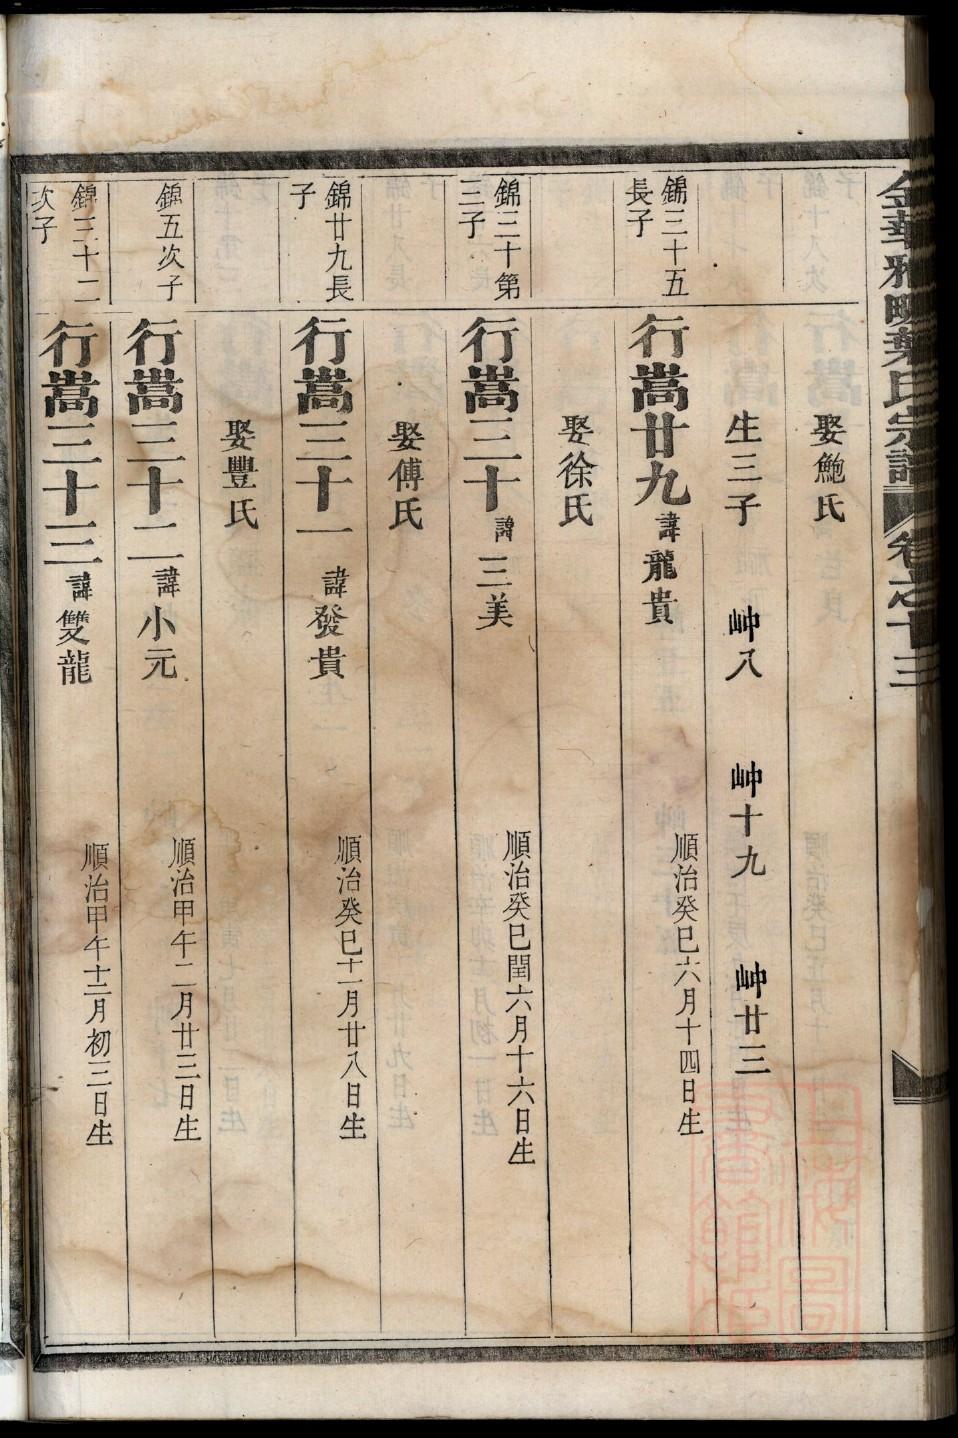 金華雅畈葉氏宗譜 卷之十三
娶鮑氏
生三子 㞢八 㞢十九 㞢廿三
錦三十五長子
行嵩廿九 諱龍貴 順治癸巳六月十四日生
娶徐氏
錦三十第三子
行嵩三十 諱三美 順治癸巳閏六月十六日生
娶傅氏
錦廿九長子
行嵩三十一 諱發貴 順治癸巳十一月廿八日生
娶豐氏
錦五次子
行嵩三十二 諱小元 順治甲午二月廿三日生
錦三十二次子
行嵩三十三 諱雙龍 順治甲午十二月初三日生